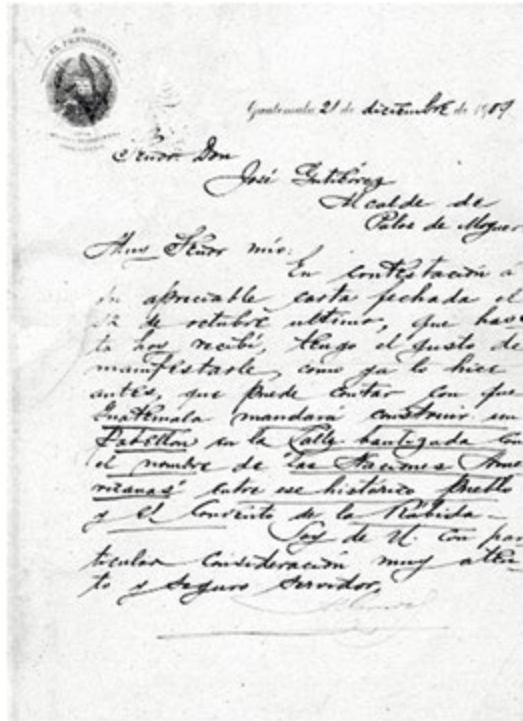 EL PRESIDENTE
Guatemala 21 de diciembre de 1909
Señor Don
José Gutiérrez
Alcalde de
Palos de Moguer
Muy Señor mío:
En contestación á
su apreciable carta fechada el
12 de octubre ultimo, que has
ta hoy recibí, tengo el gusto de
manifestarle, como ya lo hice
antes, que puede contar con que
Guatemala mandará construir un
Pabellon en la Calle bautizada con
el nombre de "las Naciones Ame
ricanas" entre ese histórico Pueblo
y el Convento de la Rábida.-
Soy de U. con par
ticular consideración muy aten
to y seguro servidor,